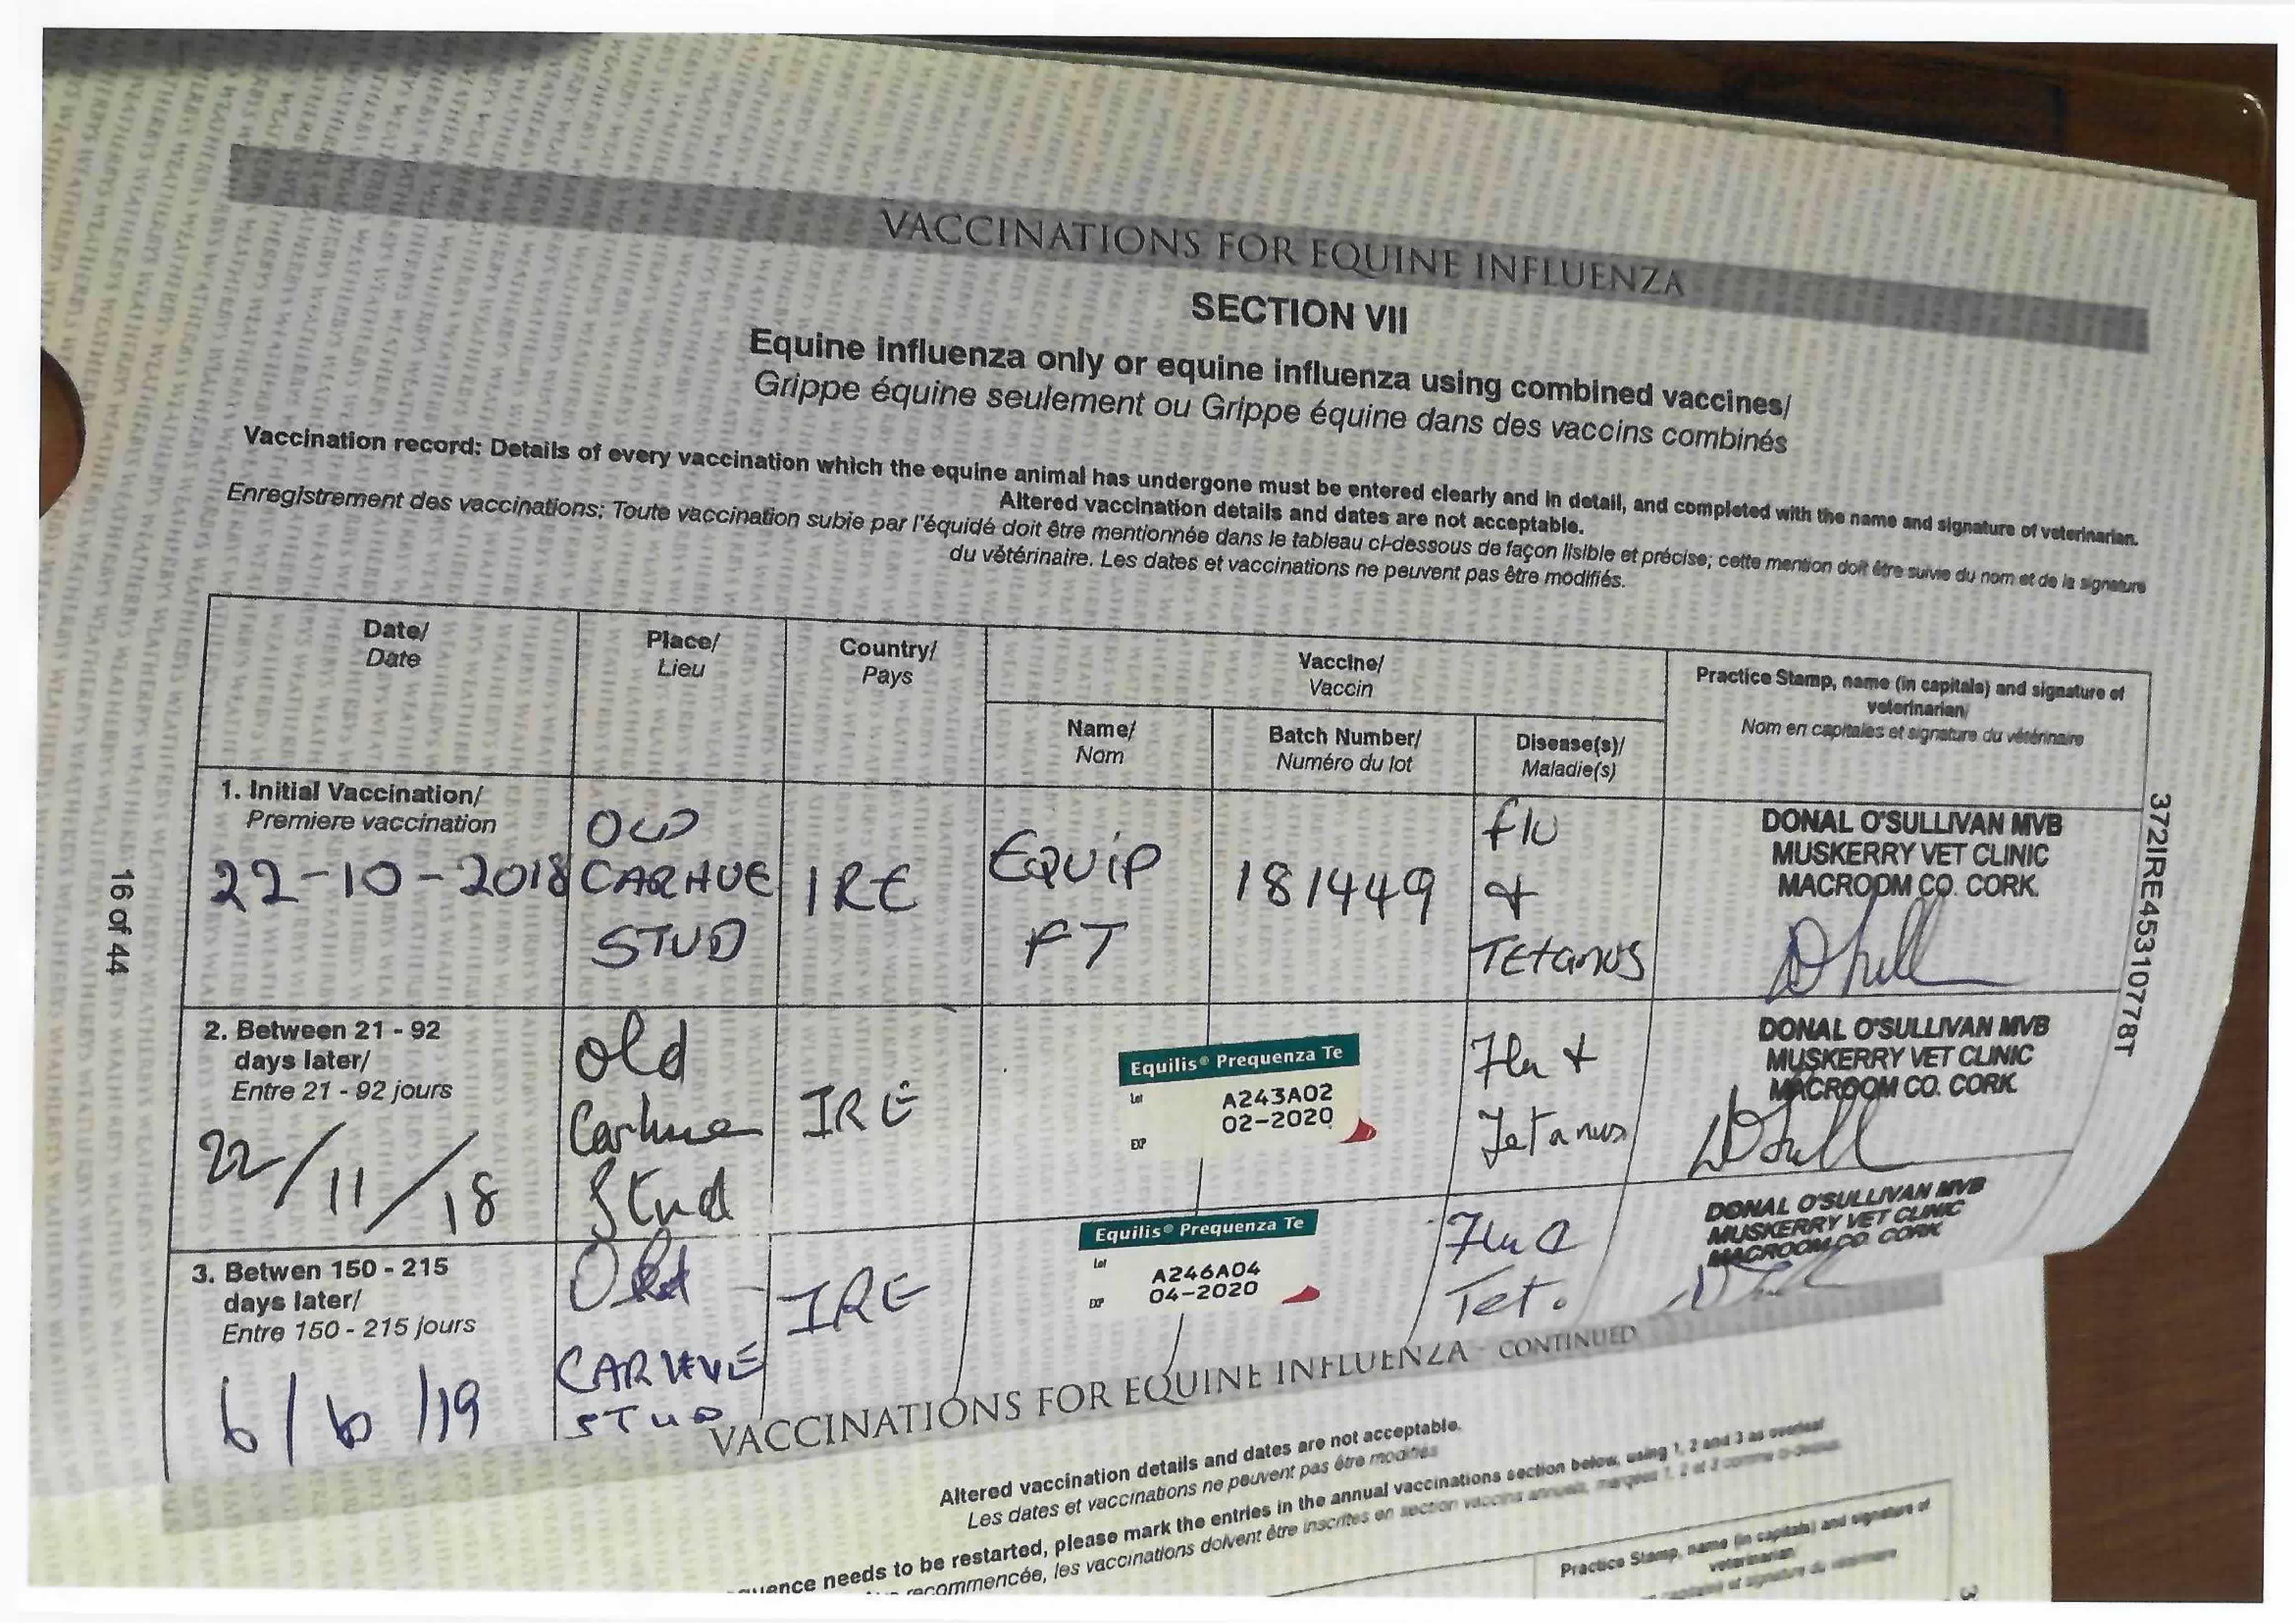 VACCINATIONS FOR EQUINE INFLUENZA
SECTION VII
Equine influenza only or equine influenza using combined vaccines/
Grippe équine seulement ou Grippe équine dans des vaccins combinés
Vaccination record: Details of every vaccination which the equine animal has undergone must be entered clearly and in detail, and completed with the name and signature of veterinarian.
Altered vaccination details and dates are not acceptable.
Enregistrement des vaccinations: Toute vaccination subie par l'équidé doit être mentionnée dans le tableau ci-dessous de façon lisible et précise; cette mention doit être suivie du nom et de la signature
du vétérinaire. Les dates et vaccinations ne peuvent pas être modifiés.
Date/
Date
Place/
Lieu
Country/
Pays
Vaccine/
Vaccin
Name/
Nom
Batch Number/
Numéro du lot
Disease(s)/
Maladie(s)
Practice Stamp, name (in capitals) and signature of
veterinarian/
Nom en capitales et signature du vétérinaire
1. Initial Vaccination/
Premiere vaccination
22-10-2018
OLD
CARHUE
STUD
IRE
EQUIP
FT
181449
flu
&
Tetanus
DONAL O'SULLIVAN MVB
MUSKERRY VET CLINIC
MACROOM CO. CORK.
2. Between 21 - 92
days later/
Entre 21 - 92 jours
22/11/18
Old
Carhue
Stud
IRE
Equilis® Prequenza Te
Lot
A243A02
02-2020
EXP
Flu &
Tetanus
DONAL O'SULLIVAN MVB
MUSKERRY VET CLINIC
MACROOM CO. CORK.
3. Betwen 150 - 215
days later/
Entre 150 - 215 jours
6/6/19
Old
CARHUE
STUD
IRE
Equilis® Prequenza Te
Lot
A246A04
04-2020
EXP
Flu &
Tet.
DONAL O'SULLIVAN MVB
MUSKERRY VET CLINIC
MACROOM CO. CORK
16 of 44
372IRE45310778T
VACCINATIONS FOR EQUINE INFLUENZA - CONTINUED
Altered vaccination details and dates are not acceptable.
Les dates et vaccinations ne peuvent pas être modifiés
needs to be restarted, please mark the entries in the annual vaccinations section below, using 1, 2 and 3 as overleaf
recommencée, les vaccinations doivent être inscrites en section vaccins annuels, marquées 1, 2 et 3 comme ci-dessus
Practice Stamp, name (in capitals) and signature of
veterinarian/
capitales et signature du vétérinaire